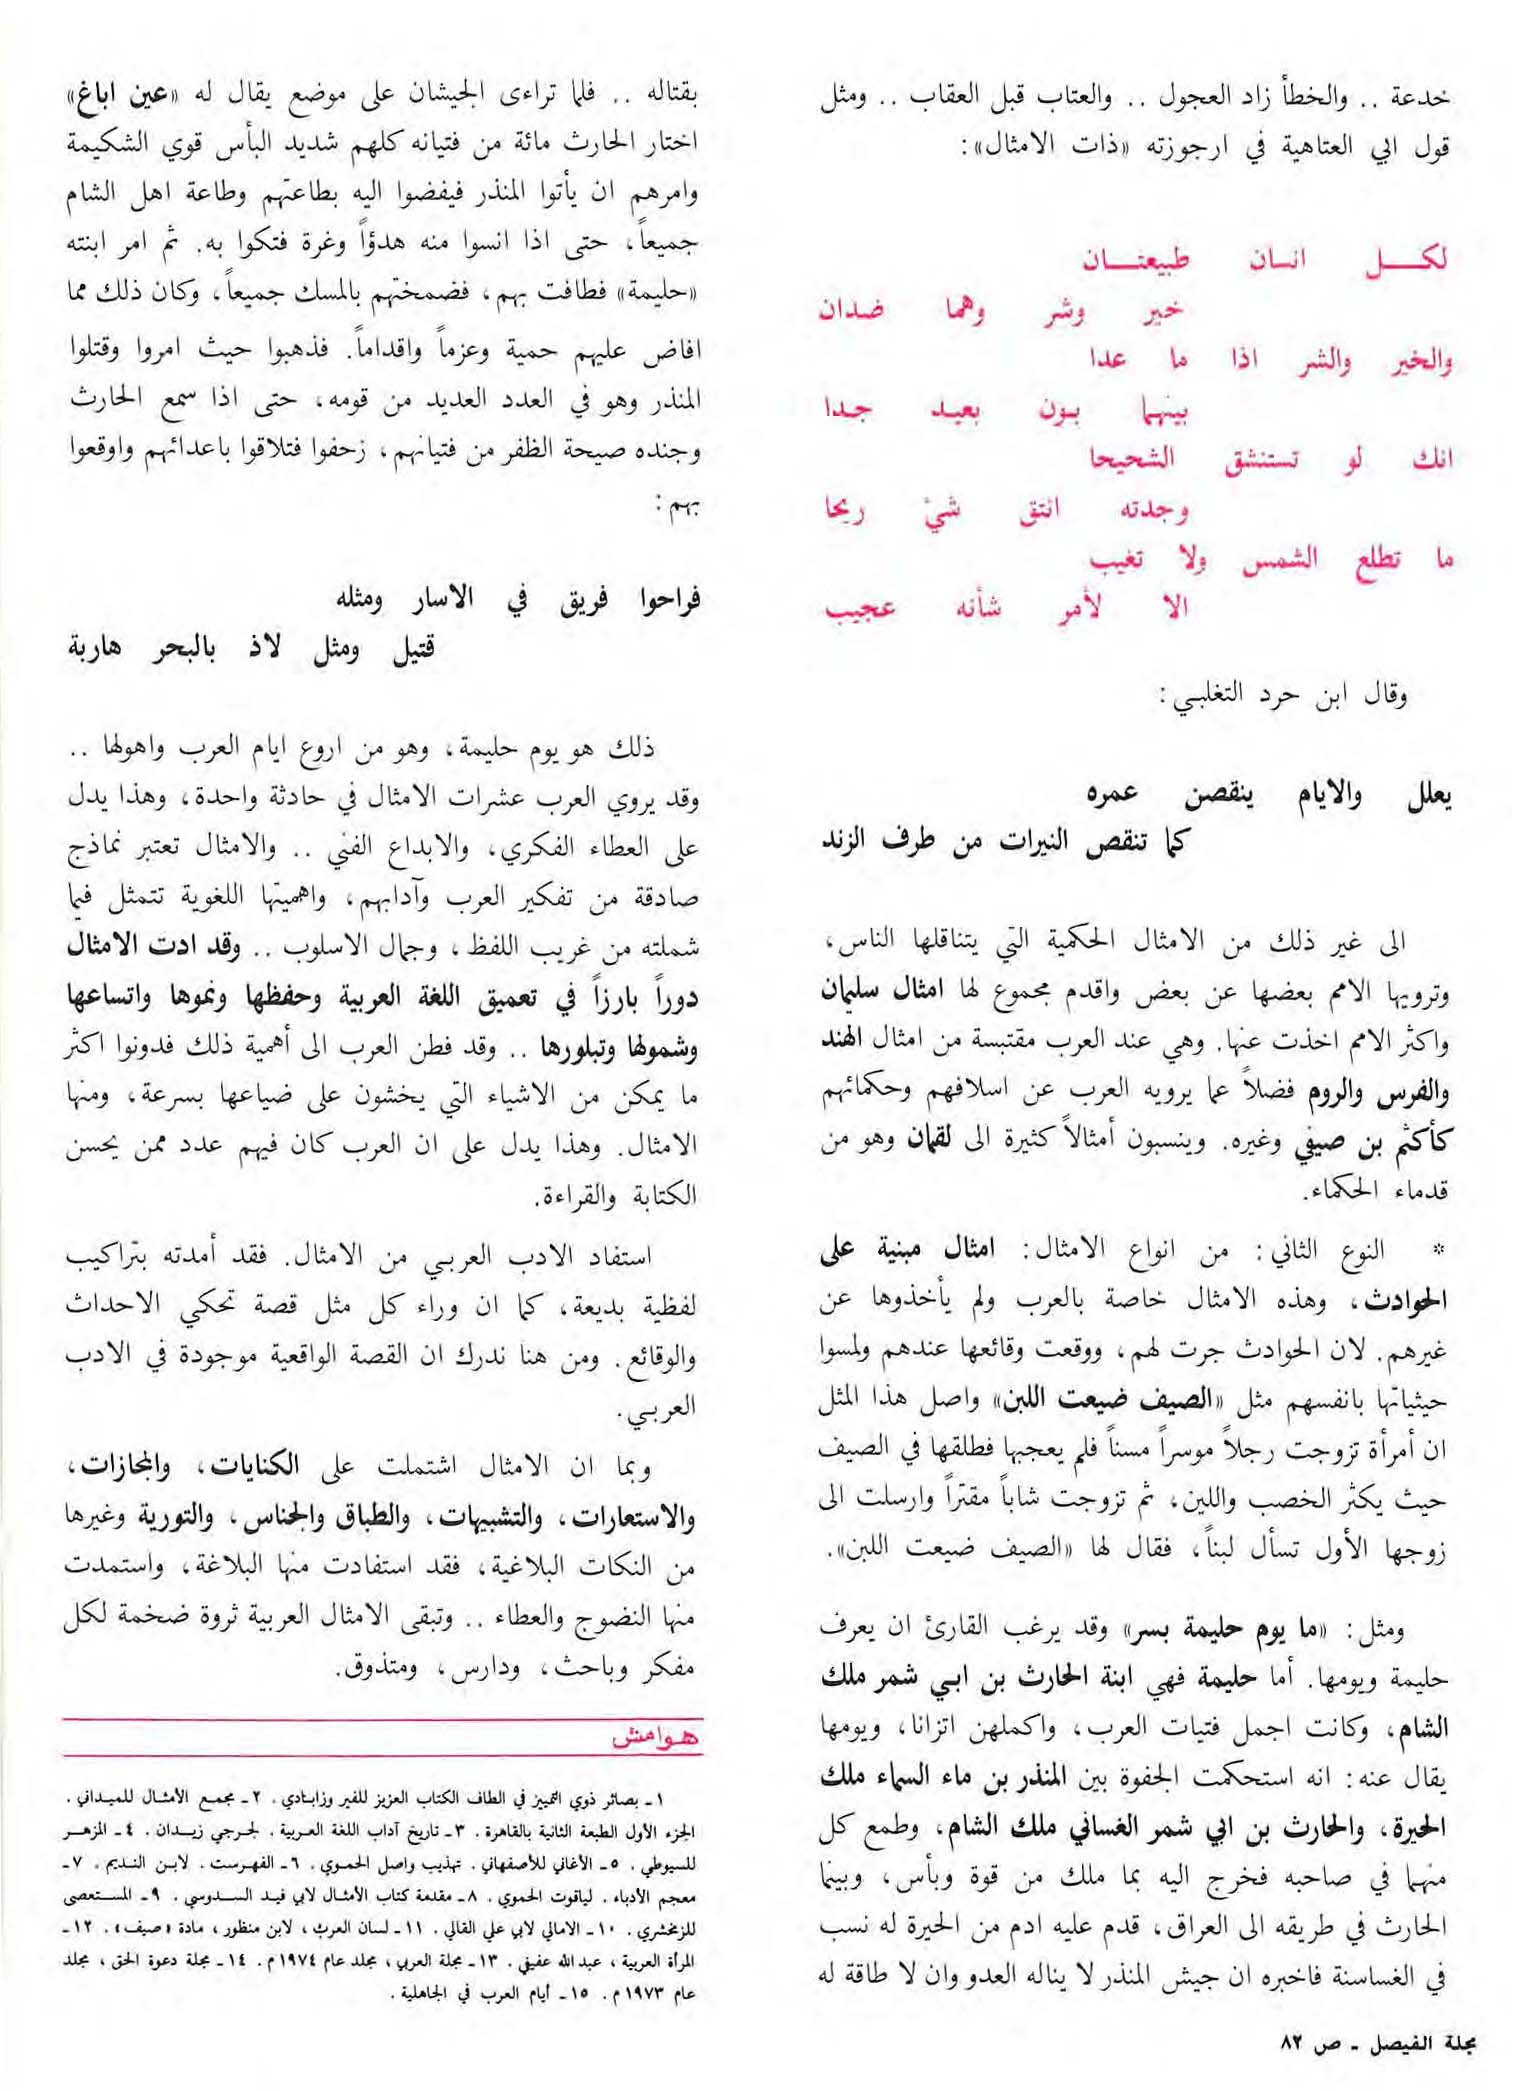 خدعة .. والخطأ زاد العجول .. والعتاب قبل العقاب .. ومثل
قول ابي العتاهية في ارجوزته «ذات الامثال»:
لكــــل انــسان طبيعتــــان
خير وشر وهما ضدان
والخير والشر اذا ما عدا
بينهما بون بعيد جدا
انك لو تستنشق الشحيحا
وجدته انتق شيْ ريحا
ما تطلع الشمس ولا تغيب
الا لأمر شأنه عجيب
وقال ابن حرد التغلبي :
يعلل والايام ينقصن عمره
كما تنقص النيرات من طرف الزند
الى غير ذلك من الامثال الحكمية التي يتناقلها الناس،
وترويها الامم بعضها عن بعض واقدم مجموع لها امثال سليمان
واكثر الامم اخذت عنها. وهي عند العرب مقتبسة من امثال الهند
والفرس والروم فضلاً عما يرويه العرب عن اسلافهم وحكمائهم
كأكثم بن صيفي وغيره. وينسبون أمثالاً كثيرة الى لقمان وهو من
قدماء الحكماء.
* النوع الثاني: من انواع الامثال: امثال مبنية على
الحوادث، وهذه الامثال خاصة بالعرب ولم يأخذوها عن
غيرهم. لان الحوادث جرت لهم، ووقعت وقائعها عندهم ولمسوا
حيثياتها بانفسهم مثل «الصيف ضيعت اللبن» واصل هذا المثل
ان أمرأة تزوجت رجلاً موسراً مسناً فلم يعجبها فطلقها في الصيف
حيث يكثر الخصب واللين، ثم تزوجت شاباً مقتراً وارسلت الى
زوجها الأول تسأل لبناً، فقال لها «الصيف ضيعت اللبن».
ومثل: «ما يوم حليمة بسر» وقد يرغب القارئ ان يعرف
حليمة ويومها. أما حليمة فهي ابنة الحارث بن ابي شمر ملك
الشام، وكانت اجمل فتيات العرب، واكملهن اتزانا، ويومها
يقال عنه: انه استحكمت الجفوة بين المنذر بن ماء السماء ملك
الحيرة، والحارث بن ابي شمر الغساني ملك الشام، وطمع كل
منهما في صاحبه فخرج اليه بما ملك من قوة وبأس، وبينما
الحارث في طريقه الى العراق، قدم عليه ادم من الحيرة له نسب
في الغساسنة فاخبره ان جيش المنذر لا يناله العدو وان لا طاقة له
بقتاله .. فلما تراءى الجيشان على موضع يقال له «عين اباغ»
اختار الحارث مائة من فتيانه كلهم شديد البأس قوي الشكيمة
وامرهم ان يأتوا المنذر فيفضوا اليه بطاعتهم وطاعة اهل الشام
جميعاً، حتى اذا انسوا منه هدؤاً وغرة فتكوا به. ثم امر ابنته
«حليمة» فطافت بهم، فضمختهم بالمسك جميعاً، وكان ذلك مما
افاض عليهم حمية وعزماً واقداماً. فذهبوا حيث امروا وقتلوا
المنذر وهو في العدد العديد من قومه، حتى اذا سمع الحارث
وجنده صيحة الظفر من فتيانهم، زحفوا فتلاقوا باعدائهم واوقعوا
بهم:
فراحوا فريق في الاسار ومثله
قتيل ومثل لاذ بالبحر هاربة
ذلك هو يوم حليمة، وهو من اروع ايام العرب واهولها ..
وقد يروي العرب عشرات الامثال في حادثة واحدة، وهذا يدل
على العطاء الفكري، والابداع الفني .. والامثال تعتبر نماذج
صادقة من تفكير العرب وآدابهم، واهميتها اللغوية تتمثل فيما
شملته من غريب اللفظ، وجمال الاسلوب .. وقد ادت الامثال
دوراً بارزاً في تعميق اللغة العربية وحفظها ونموها واتساعها
وشمولها وتبلورها .. وقد فطن العرب الى أهمية ذلك فدونوا اكثر
ما يمكن من الاشياء التي يخشون على ضياعها بسرعة، ومنها
الامثال. وهذا يدل على ان العرب كان فيهم عدد ممن يحسن
الكتابة والقراءة.
استفاد الادب العربي من الامثال. فقد أمدته بتراكيب
لفظية بديعة، كما ان وراء كل مثل قصة تحكي الاحداث
والوقائع. ومن هنا ندرك ان القصة الواقعية موجودة في الادب
العربي.
وبما ان الامثال اشتملت على الكنايات، والمجازات،
والاستعارات، والتشبيهات، والطباق والجناس، والتورية وغيرها
من النكات البلاغية، فقد استفادت منها البلاغة، واستمدت
منها النضوج والعطاء .. وتبقى الامثال العربية ثروة ضخمة لكل
مفكر وباحث، ودارس، ومتذوق.
هوامش
١ - بصائر ذوي التمييز في الطاف الكتاب العزيز للفير وزابادي. ٢ - مجمع الأمثال للميداني.
الجزء الأول الطبعة الثانية بالقاهرة. ٣ - تاريخ آداب اللغة العربية. لجرجي زيدان. ٤ - المزهر
للسيوطي. ٥ - الأغاني للأصفهاني. تهذيب واصل الحموي. ٦ - الفهرست. لابن النديم. ٧ -
معجم الأدباء. لياقوت الحموي. ٨ - مقدمة كتاب الأمثال لابي فيد السدوسي. ٩ - المستعصى
للزمخشري. ١٠ - الامالي لابي علي القالي. ١١ - لسان العرب، لابن منظور، مادة «صيف». ١٢ -
المرأة العربية، عبدالله عفيفي. ١٣ - مجلة العربي، مجلد عام ١٩٧٤ م. ١٤ - مجلة دعوة الحق، مجلد
عام ١٩٧٣ م. ١٥ - أيام العرب في الجاهلية.
مجلة الفيصل - ص ٨٢